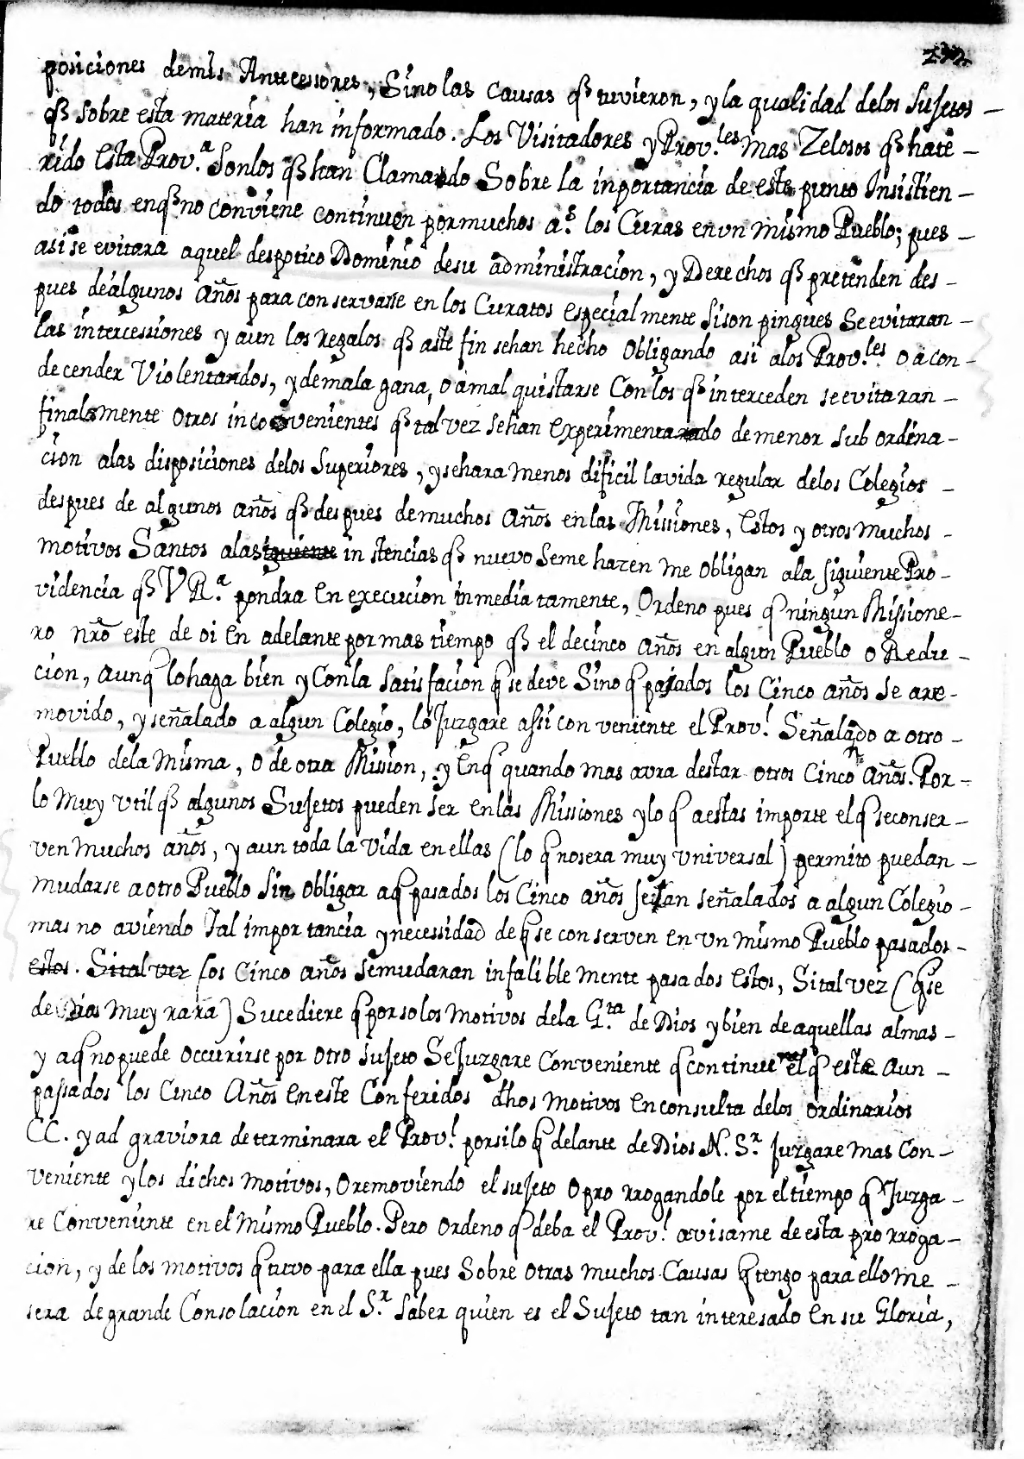 posiciones demis Antecessores, Sino las causas q̃ tuvieron, y la qualidad delos sujetos
q̃ sobre esta materia han informado. Los Visitadores y Prov.les mas Zelosos q̃ hate-
nido esta Prov.a Son los q̃ han Clamado Sobre la inportancia de este punto Insistien-
do todos enq̃ no conviene continuen por muchos a.s los Curas en vn mismo Pueblo; pues
asi se evitara aquel despotico Dominio desu administracion, y Derechos q̃ pretenden des-
pues dealgunos años para conservarse en los Curatos especialmente si son pingues se evitaran
las intercessiones y aun los regalos q̃ aste fin sehan hecho obligando asi alos Prov.les o a con-
decender Violentados, y demala gana, o amal quistarse Con los q̃ interceden se evitaran
finalmente otros incovenientes q̃ talvez sehan experimentado demenor sub ordina-
cion alas disposiciones delos Superiores, y sehara menos dificil la vida regular delos Colegios
despues de algunos años q̃ despues demuchos años en las Missiones, Estos y otros muchos
motivos Santos alas instencias q̃ nuevo seme hazen me obligan ala siguiente Pro-
videncia q̃ V R.a pondra en execucion inmediatamente, Ordeno pues q̃ ningun Missione-
ro nr̃o este de oi en adelante por mas tiempo q̃ el decinco años en algun Pueblo o Redu-
cion, aunq̃ lo haga bien y Con la satisfacion q̃ se deve Sino q̃ pasados los Cinco años se a re-
movido, y señalado a algun Colegio, lo Juzgare assi con veniente el Prov.l Señalado a otro
Pueblo dela misma, o de otra Mision, y Enq̃ quando mas avra destar otros Cinco años. Por
lo muy vtil q̃ algunos Sujetos pueden ser en las Missiones y lo q̃ a estas importe el q̃ se conser-
ven muchos años, y aun toda la vida en ellas (lo q̃ no sera muy vniversal) permito puedan
mudarse a otro Pueblo sin obligar a q̃ pasados los Cinco años señalados a algun Colegio
mas no aviendo tal importancia y necessidad de q̃ se conserven en vn mismo Pueblo pasados
estos. Si tal vez los cinco años semudaran infaliblemente pasados estos, Si tal vez (q̃ se
de Dios muy rara) Sucediere q̃ por solos motivos dela G.ta de Dios y bien de aquellas almas
y a q̃ no puede occurirse por otro sujeto Se Juzgare Conveniente q̃ continue el q̃ esta aun
passados los Cinco Años en este Conferidos dhos motivos en consulta delos ordinarios
CC. y ad graviora determinara el Prov.l por si lo q̃ delante de Dios N. S.r Juzgare mas con-
veniente y los dichos motivos, o removiendo el sujeto o prorrogandole por el tiempo q̃ Juzga-
re Conveniente en el mismo Pueblo. Pero ordeno q̃ deba el Prov.l avisarme de esta prorroga-
cion, y de los motivos q̃ tuvo para ella pues Sobre otras muchas Causas q̃ tengo para ello me
sera de grande Consolacion en el S.r saber quien es el Sujeto tan interesado en su Gloria,